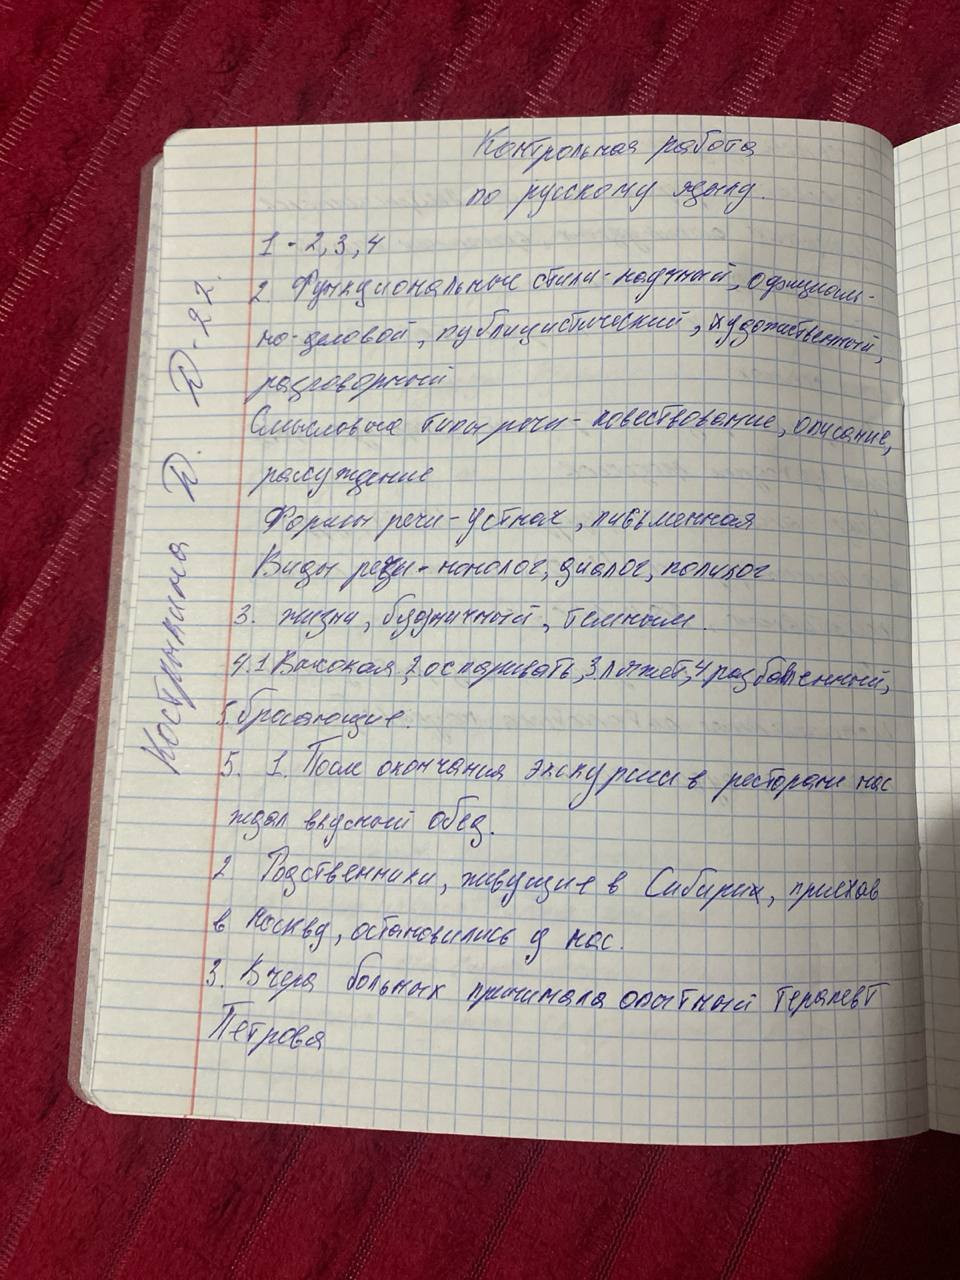 Контрольная работа
по русскому языку.
1 - 2, 3, 4
2. Функциональные стили - научный, официаль-
но-деловой, публицистический, художественный,
разговорный
Смысловые типы речи - повествование, описание,
рассуждение
Формы речи - устная, письменная
Виды речи - монолог, диалог, полилог
3. жизни, будничный, темным.
4. 1 Высокая, 2 оспаривать, 3 может, 4 разбавленный,
5. бросающие.
5. 1. После окончания экскурсии в ресторане нас
ждал вкусный обед.
2 Родственники, живущие в Сибири, приехав
в Москву, остановились у нас.
3. Вчера больных принимала опытный терапевт
Петрова
Кострыкина П. П - 22.